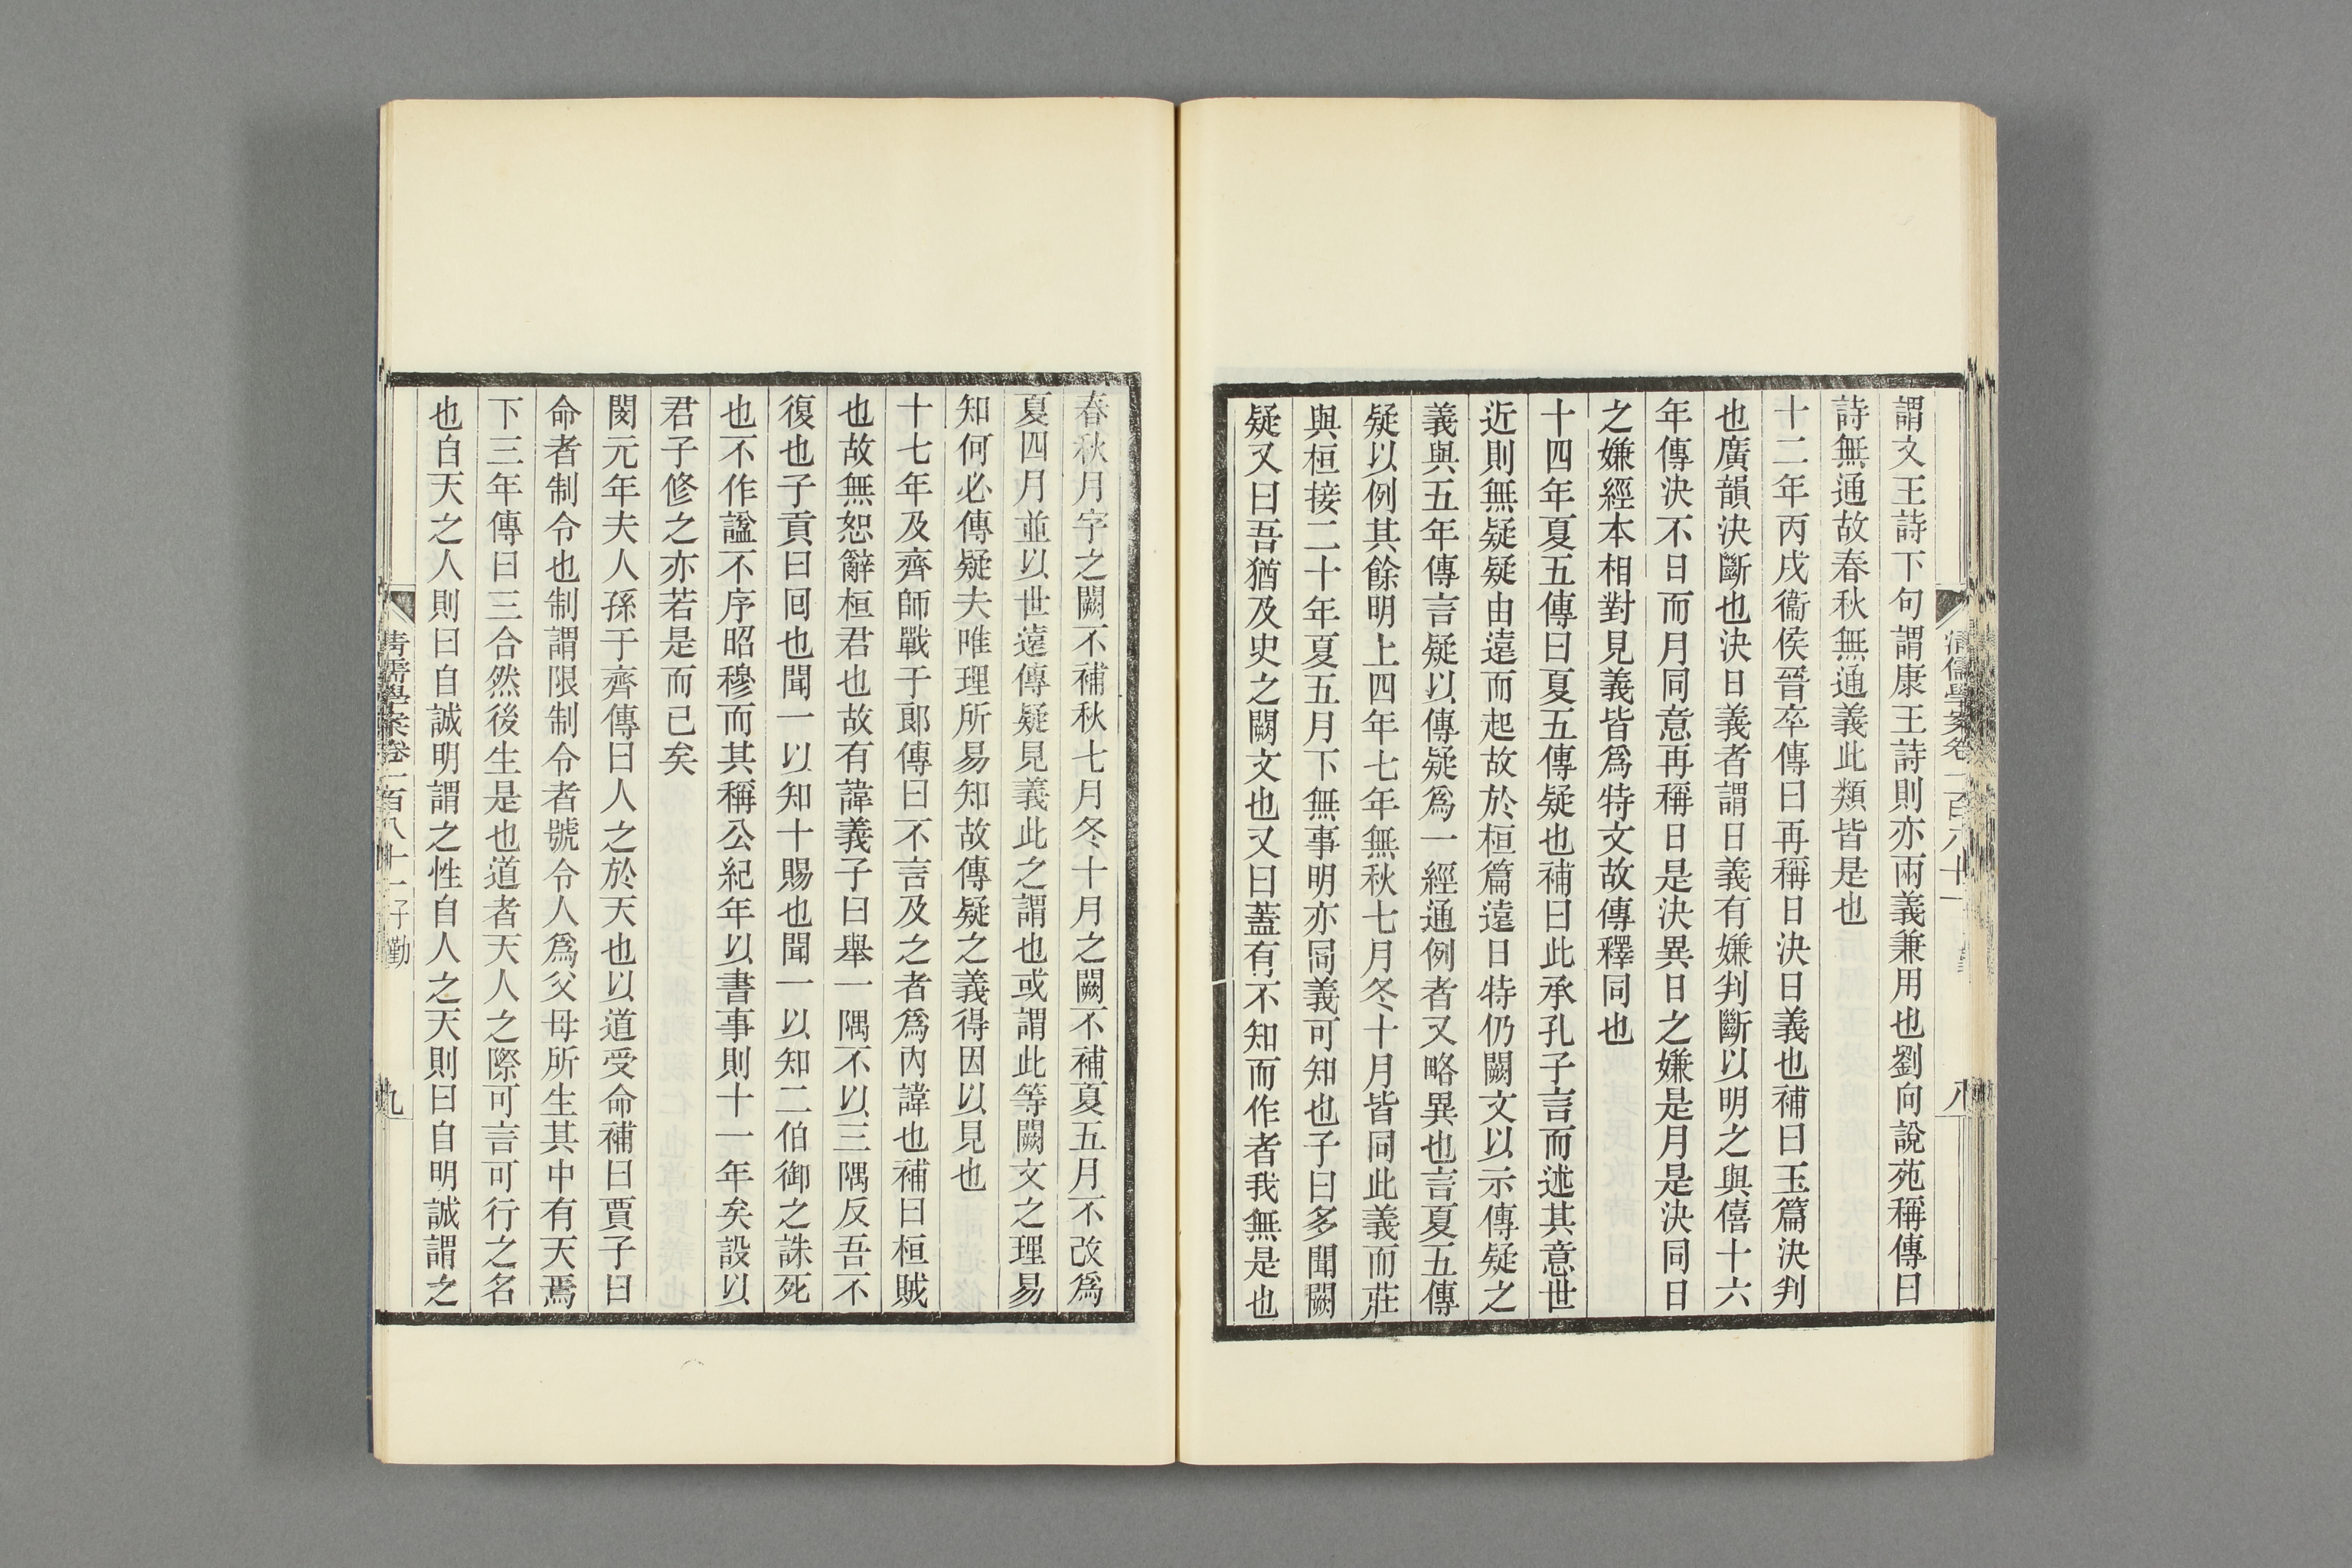 謂文王詩下句謂康王詩則亦兩義兼用也劉向說苑稱傳曰
詩無通故春秋無通義此類皆是也
十二年丙戌衞侯晉卒傳曰再稱日決日義也補曰玉篇決判
也廣韻決斷也決日義者謂日義有嫌判斷以明之與僖十六
年傳決不日而月同意再稱日是決異日之嫌是月是決同日
之嫌經本相對見義皆爲特文故傳釋同也
十四年夏五傳曰夏五傳疑也補曰此承孔子言而述其意世
近則無疑疑由遠而起故於桓篇遠日特仍闕文以示傳疑之
義與五年傳言疑以傳疑爲一經通例者又略異也言夏五傳
疑以例其餘明上四年七年無秋七月冬十月皆同此義而莊
與桓接二十年夏五月下無事明亦同義可知也子曰多聞闕
疑又曰吾猶及史之闕文也又曰蓋有不知而作者我無是也
春秋月字之闕不補秋七月冬十月之闕不補夏五月不改爲
夏四月並以世遠傳疑見義此之謂也或謂此等闕文之理易
知何必傳疑夫唯理所易知故傳疑之義得因以見也
十七年及齊師戰于郎傳曰不言及之者爲內諱也補曰桓賊
也故無恕辭桓君也故有諱義子曰舉一隅不以三隅反吾不
復也子貢曰回也聞一以知十賜也聞一以知二伯御之誅死
也不作諡不序昭穆而其稱公紀年以書事則十一年矣設以
君子修之亦若是而已矣
閔元年夫人孫于齊傳曰人之於天也以道受命補曰賈子曰
命者制令也制謂限制令者號令人爲父母所生其中有天焉
下三年傳曰三合然後生是也道者天人之際可言可行之名
也自天之人則曰自誠明謂之性自人之天則曰自明誠謂之
清儒學案卷一百八十一 子勤
九